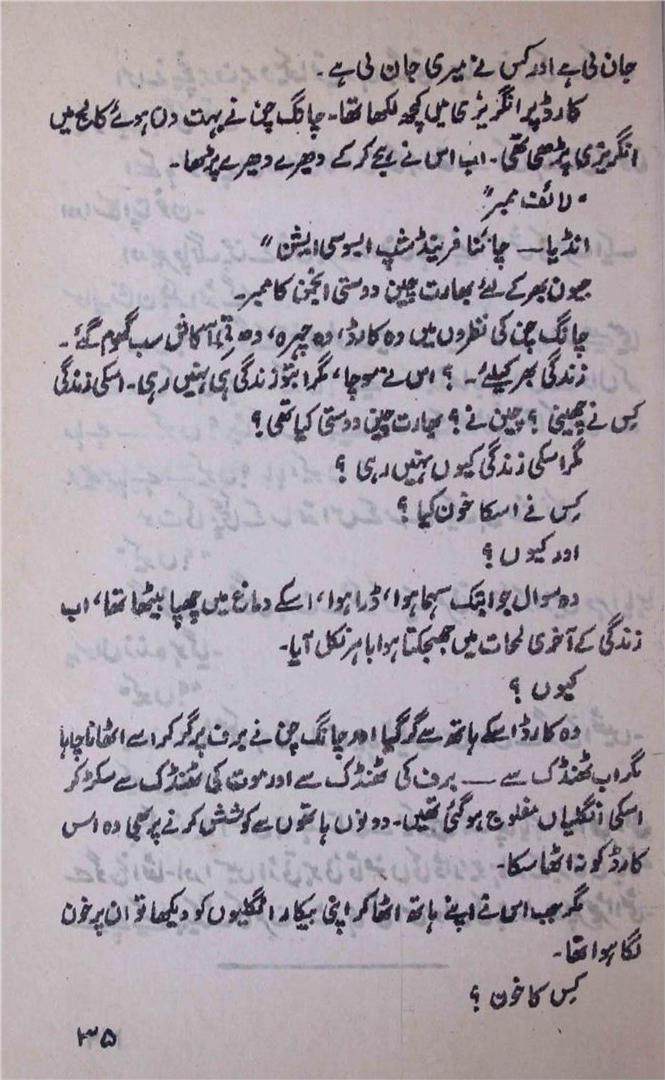 جان لی ہے اور کس نے میری جان لی ہے۔
کارڈ پر انگریزی میں کچھ لکھا تھا۔ چانگ چن نے بہت دن ہوئے کالج میں
انگریزی پڑھی تھی۔ اب اس نے ہجے کر کے دھیرے دھیرے پڑھا۔
"لائف ممبر"
انڈیا — چائنا فرینڈ شپ ایسوسی ایشن"
جیون بھر کے لئے بھارت چین دوستی انجمن کا ممبر۔
چانگ چن کی نظروں میں وہ کارڈ، وہ چہرہ، وہ نیلا آکاش سب گھوم گئے۔
زندگی بھر کیلئے۔ ؟ اس نے سوچا، مگر اب تو زندگی ہی نہیں رہی۔ اسکی زندگی
کِس نے چھینی ؟ چین نے ؟ بھارت چین دوستی کیا تھی ؟
مگر اسکی زندگی کیوں نہیں رہی ؟
کِس نے اسکا خون کیا ؟
اور کیوں ؟
وہ سوال جو ابتک سہما ہوا، ڈرا ہوا، اسکے دماغ میں چھپا بیٹھا تھا، اب
زندگی کے آخری لمحات میں جھجکتا ہوا باہر نکل آیا۔
کیوں ؟
وہ کارڈ اسکے ہاتھ سے گر گیا اور چانگ چن نے برف پر گر کر اسے اٹھانا چاہا
مگر اب ٹھنڈک سے — برف کی ٹھنڈک سے اور موت کی ٹھنڈک سے سکڑ کر
اسکی انگلیاں مفلوج ہو گئی تھیں۔ دونوں ہاتھوں سے کوشش کرنے پر بھی وہ اس
کارڈ کو نہ اٹھا سکا۔
مگر جب اس نے اپنے ہاتھ اٹھا کر اپنی بیکار انگلیوں کو دیکھا تو ان پر خون
لگا ہوا تھا۔
کِس کا خون ؟
۲۳۵